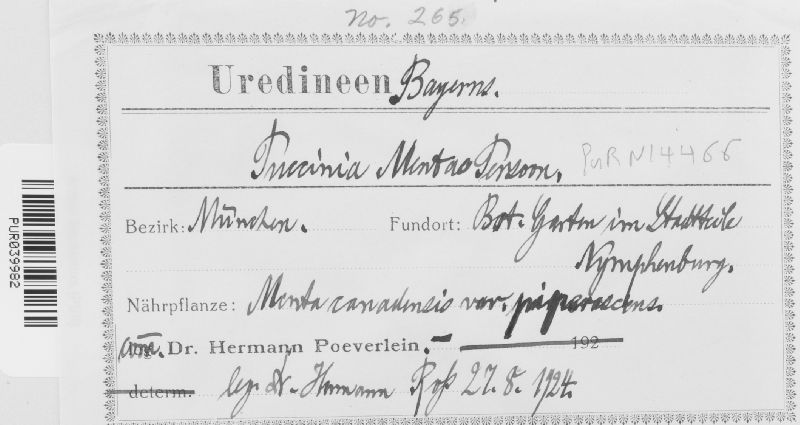 No. 265.
Uredineen Bayerns.
Puccinia Mentae Persoon.
PUR N14466
Bezirk: München. Fundort: Bot. Garten im Stadtteile
Nymphenburg.
Nährpflanze: Menta canadensis var. piperascens.
com. Dr. Hermann Poeverlein. — 192
determ. leg. Dr. Hermann Roß 27. 8. 1924.
PUR039982